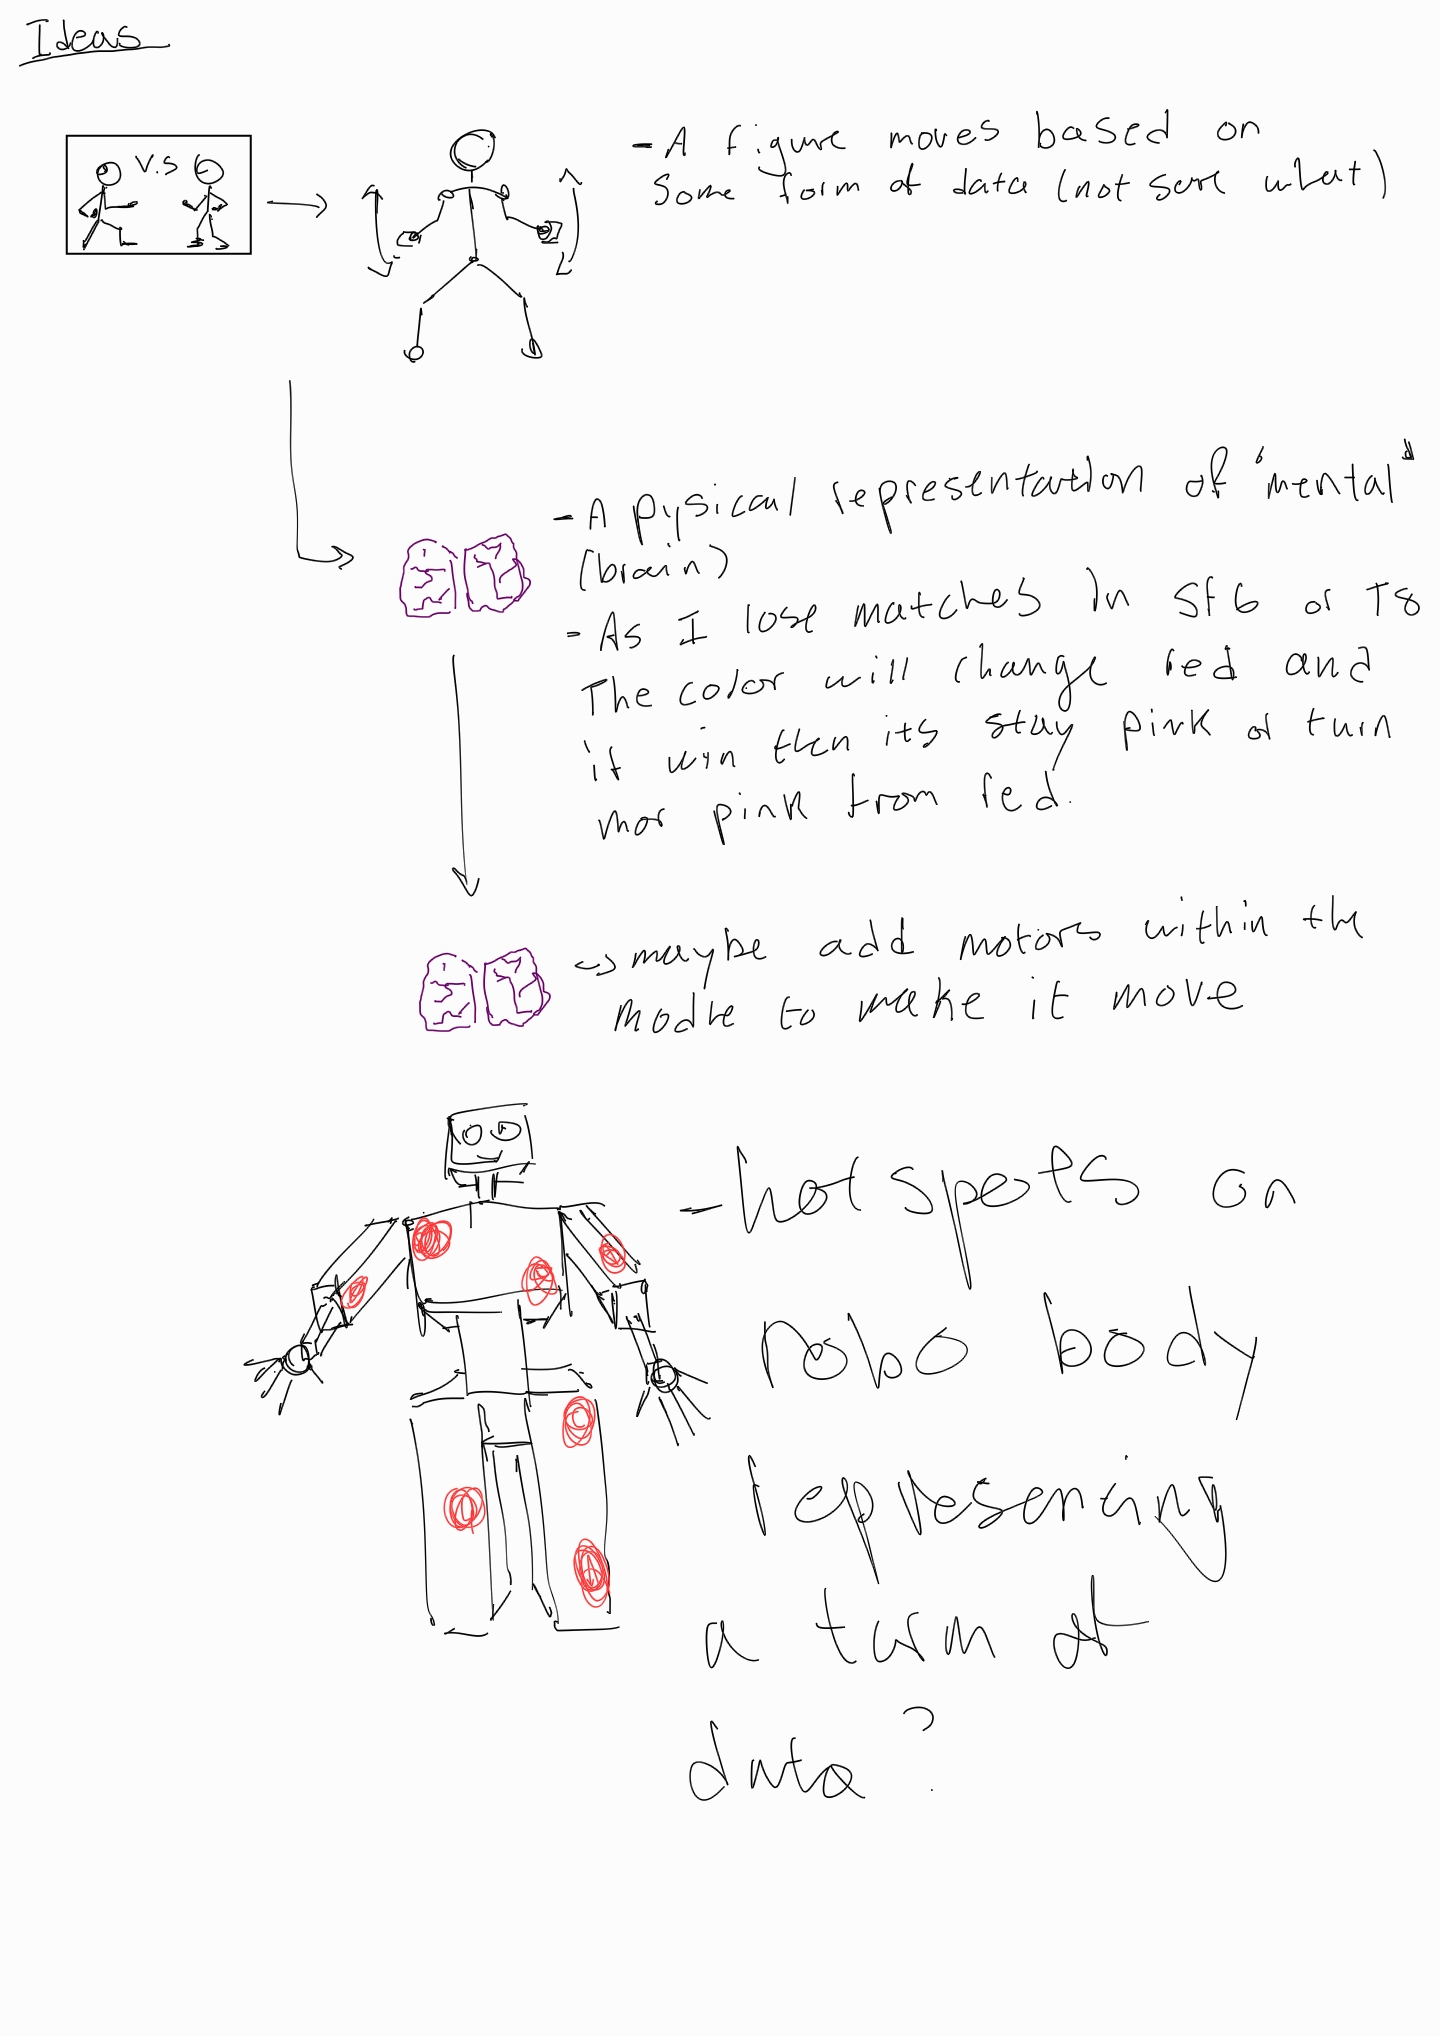 Ideas
V.S
- A figure moves based on
Some form of data (not sure what)
- A pysical representation of "mental"
(brain)
- As I lose matches in Sf6 or T8
The color will change red and
if win then its stay pink or turn
mor pink from red.
maybe add motors within the
modle to make it move
- hot spots on
robo body
represening
a form of
data?